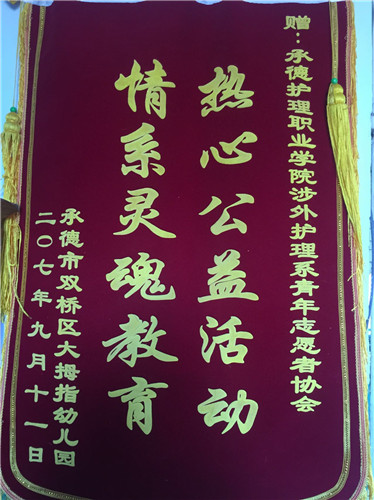 赠:承德护理职业学院涉外护理系青年志愿者协会
热心公益活动
情系灵魂教育
承德市双桥区大拇指幼儿园
二〇一七年九月十一日